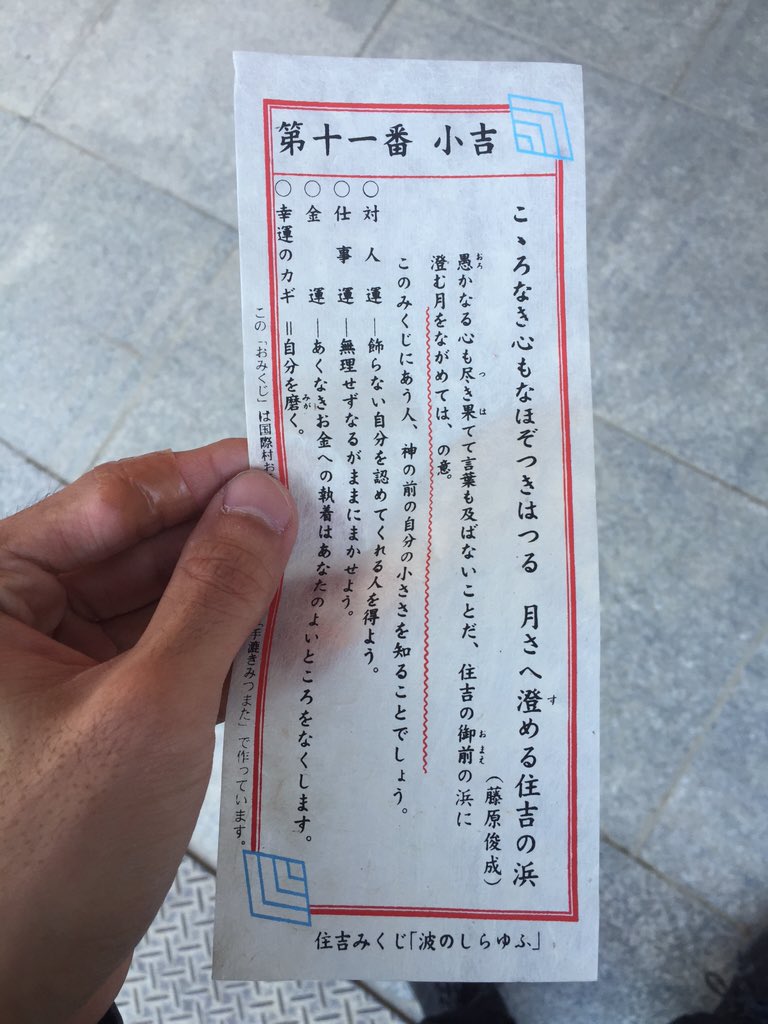 第十一番 小吉
こゝろなき心もなほぞつきはつる 月さへ澄める住吉の浜
(藤原俊成)
愚かなる心も尽き果てて言葉も及ばないことだ、住吉の御前の浜に
澄む月をながめては、の意。
このみくじにあう人、神の前の自分の小ささを知ることでしょう。
○対人運―飾らない自分を認めてくれる人を得よう。
○仕事運―無理せずなるがままにまかせよう。
○金運―あくなきお金への執着はあなたのよいところをなくします。
○幸運のカギ=自分を磨く。
この「おみくじ」は国際村お
「手漉きみつまた」で作っています。
住吉みくじ「波のしらゆふ」